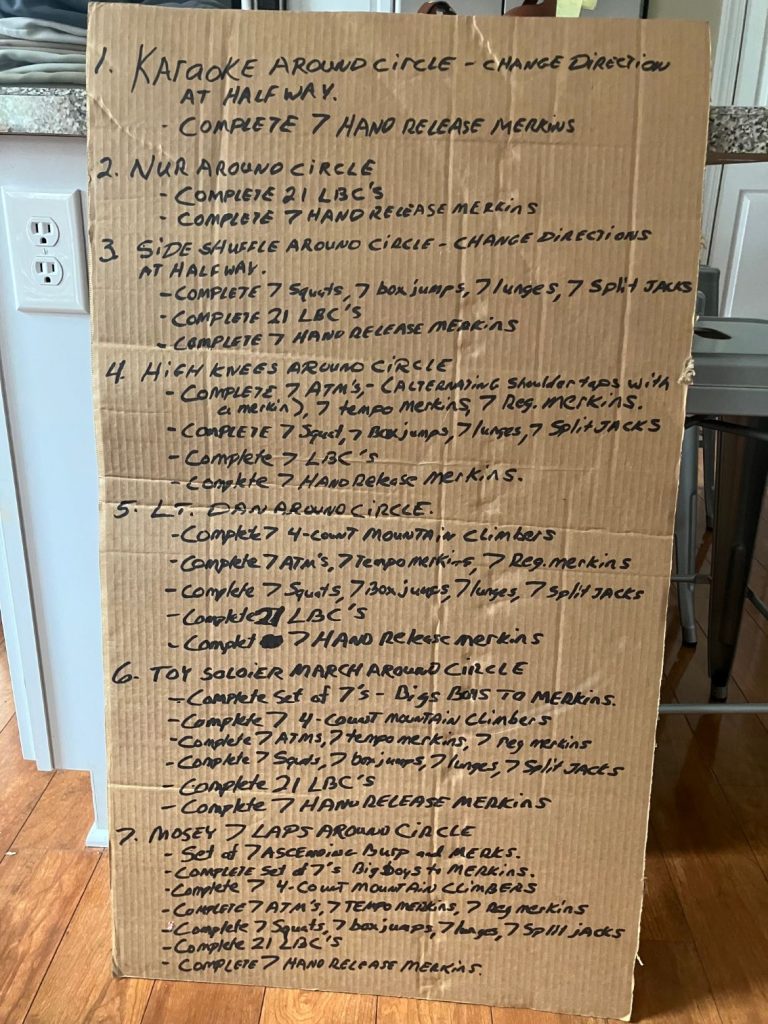 1. KARAOKE AROUND CIRCLE - CHANGE DIRECTION
AT HALF WAY.
- COMPLETE 7 HAND RELEASE MERKINS
2. NUR AROUND CIRCLE
- COMPLETE 21 LBC'S
- COMPLETE 7 HAND RELEASE MERKINS
3. SIDE SHUFFLE AROUND CIRCLE - CHANGE DIRECTIONS
AT HALF WAY.
- COMPLETE 7 Squats, 7 box jumps, 7 lunges, 7 Split JACKS
- COMPLETE 21 LBC'S
- COMPLETE 7 HAND RELEASE MERKINS
4. HIGH KNEES AROUND CIRCLE
- COMPLETE 7 ATM'S, - (ALTERNATING Shoulder taps with
a merkin), 7 tempo merkins, 7 Reg. merkins.
- COMPLETE 7 Squat, 7 Box jumps, 7 lunges, 7 Split JACKS
- Complete 7 LBC'S
- Complete 7 HAND Release merkins.
5. LT. DAN AROUND CIRCLE.
- Complete 7 4-COUNT MOUNTAIN Climbers
- Complete 7 ATM'S, 7 Tempo merkins, 7 Reg. merkins
- Complete 7 Squats, 7 Box jumps, 7 lunges, 7 Split JACKS
- Complete 21 LBC'S
- Complet 7 HAND Release merkins
6. TOY SOLDIER MARCH AROUND CIRCLE
- Complete Set of 7's - Bigs Boys To MERKINS.
- Complete 7 4-Count MOUNTAIN Climbers
- Complete 7 ATMS, 7 tempo merkins, 7 reg merkins
- Complete 7 Squats, 7 box jumps, 7 lunges, 7 Split JACKS
- Complete 21 LBC'S
- Complete 7 HAND RELEASE MERKINS
7. MOSEY 7 LAPS AROUND CIRCLE
- Set of 7 ASCENDING Burp and MERKS.
- COMPLETE Set of 7's Big boys to MERKINS.
- Complete 7 4-COUNT MOUNTAIN CLIMBERS
- COMPLETE 7 ATM'S, 7 TEMPO MERKINS, 7 Reg merkins
- Complete 7 Squats, 7 box jumps, 7 lunges, 7 Split jacks
- Complete 21 LBC'S
- COMPLETE 7 HAND RELEASE MERKINS.